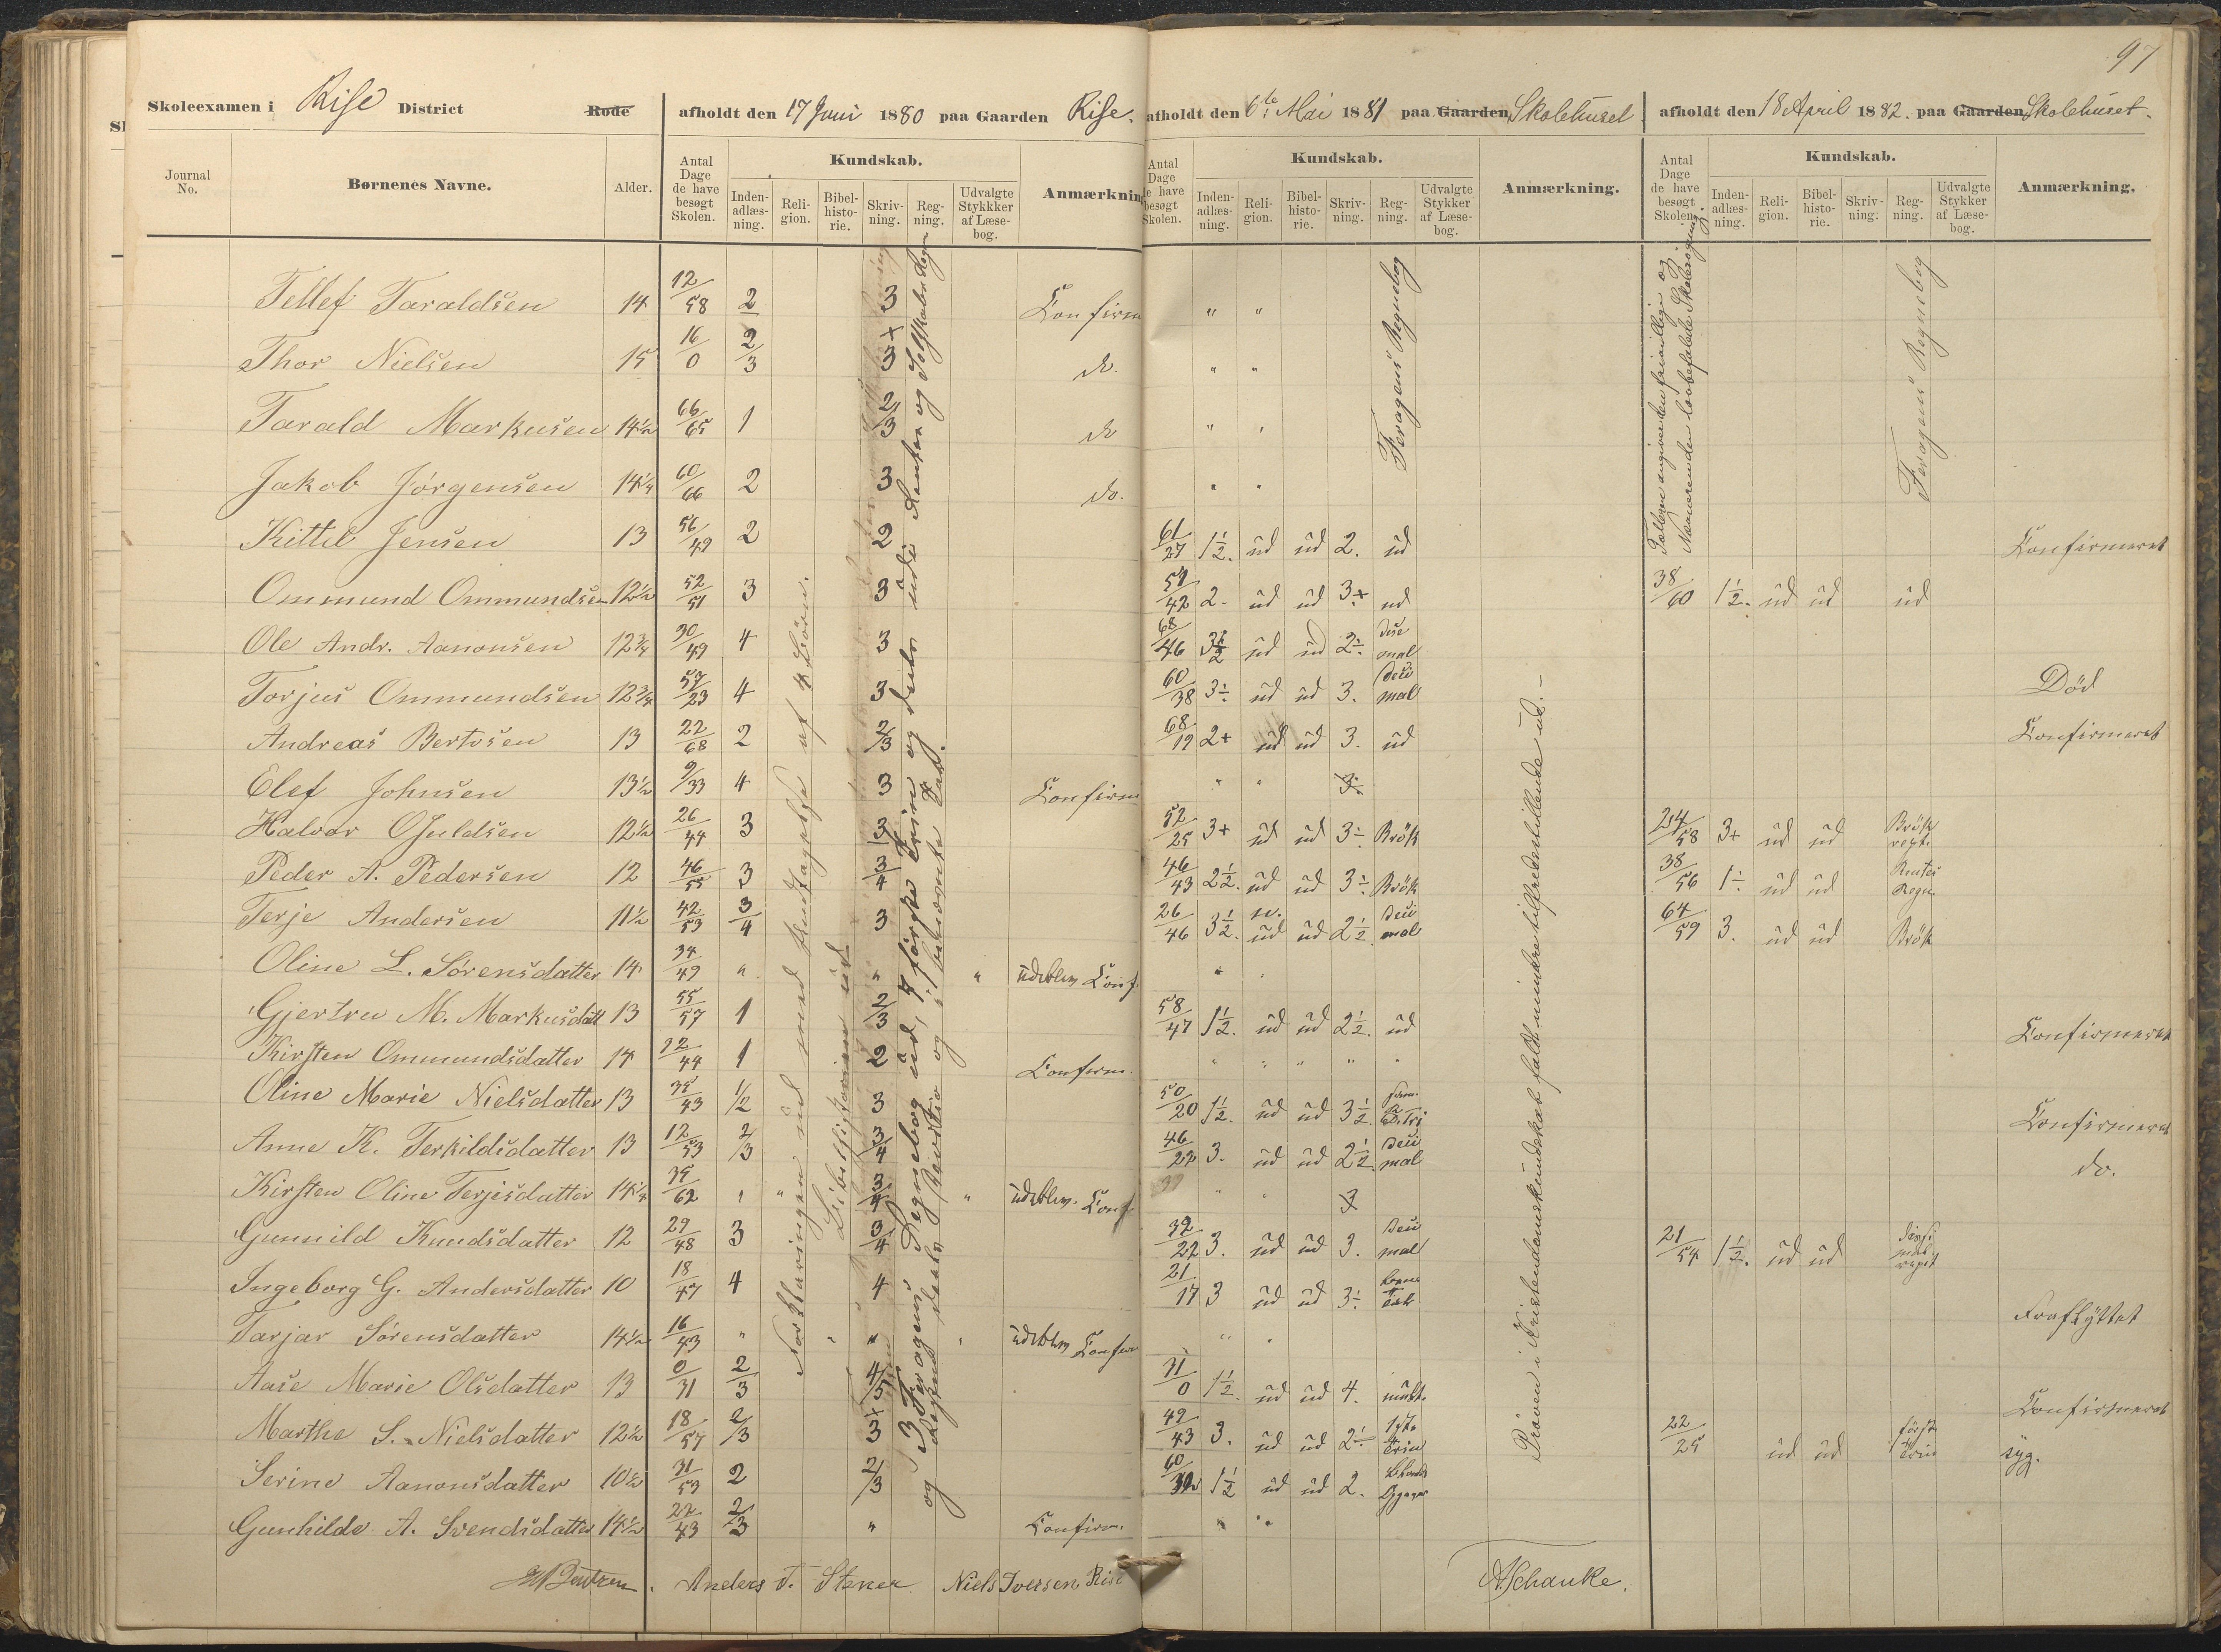 97
Skoleexamen i Rise District Rode afholdt den 17 Juni 1880 paa Gaarden Rise. afholdt den 6te Mai 1881 paa Gaarden Skolehuset. afholdt den 18 April 1882. paa Gaarden Skolehuset.
Journal No. Børnenes Navne. Alder. Antal Dage de have besøgt Skolen. Kundskab. Inden-adlæs-ning. Reli-gion. Bibel-histo-rie. Skriv-ning. Reg-ning. Udvalgte Stykkker af Læse-bog. Anmærknin
Antal Dage de have besøgt Skolen. Kundskab. Inden-adlæs-ning. Reli-gion. Bibel-histo-rie. Skriv-ning. Reg-ning. Udvalgte Stykker af Læse-bog. Anmærkning.
Antal Dage de have besøgt Skolen. Kundskab. Inden-adlæs-ning. Reli-gion. Bibel-histo-rie. Skriv-ning. Reg-ning. Udvalgte Stykker af Læse-bog. Anmærkning.
Tellef Taraldsen 14 12/58 2 3 Confirm " "
Thor Nielsen 15 16/0 2/3 3+ do. " "
Tarald Markusen 14½ 66/65 1 2/3 do " "
Jakob Jørgensen 14¼ 60/66 2 3 do. " "
Kittel Jensen 13 56/49 2 2 61/27 1½. ud ud 2. ud Confirmeret
Ommund Ommundsen 12½ 52/51 3 3 51/42 2- ud ud 3+ ud 38/60 1½. ud ud ud
Ole Andr. Aanonsen 12¾ 30/49 4 3 68/46 3½ ud ud 2÷ mal
Torjus Ommundsen 12¾ 57/23 4 3 60/38 3÷ ud ud 3. mal Död
Andreas Bertvsen 13 22/68 2 2/3 68/19 2+ ud ud 3. ud Confirmeret
Elef Johnsen 13½ 9/33 4 3 Confirm " " 3.
Halvor OJuldsen 12½ 26/44 3 3 52/25 3+ ud ud 3÷ Brök 24/58 3+ ud ud Brök rept.
Peder A. Pedersen 12 46/55 3 3/4 46/43 2½. ud ud 3÷ Brök 38/56 1÷ ud ud Rentes Regn.
Terje Andersen 11½ 42/53 3/4 3 26/46 3½. ud ud 2½. mal 64/59 3. ud ud Brök
Oline L. Sørensdatter 14 34/49 " " " udeblev Conf. " "
Gjertru M. Markusdatt 13 55/57 1 2/3 58/47 1½. ud ud 2½. ud Confirmeret
Kirsten Ommundsdatter 14 22/44 1 2 Confirm. " " " " "
Oline Marie Nielsdatter 13 35/43 1/2 3 50/20 1½. ud ud 3½. Confirmeret
Anne K. Terkildsdatter 13 12/53 2/3 3/4 46/22 3. ud ud 2½ mal do.
Kirsten Oline Terjesdatter 14¼ 35/62 " " 3/4 " udeblev. Conf. " " 3
Gunnild Knudsdatter 12 29/48 3 3/4 32/22 3. ud ud 3. mal 21/54 1½. ud ud
Ingeborg G. Andersdatter 10 18/47 4 4 21/17 3 ud ud 3÷ Fraflyttet
Tarjar Sörensdatter 14½ 16/43 " " " " udeblev Confirm " "
Aase Marie Olsdatter 13 0/31 2/3 4/5 31/0 1½. ud ud 4. Confirmeret
Marthe S. Nielsdatter 12½ 18/57 2/3 3+ 49/43 3. ud ud 2÷ 1ste Trin 22/25 ud ud förste Trin syg.
Serine Aanonsdatter 10½ 31/53 2 2/3 60/32 1½ ud ud 2.
Gunhilde A. Svendsdatter 14½ 22/43 2/3 " Confirm. " "
Forklaringen ud med Undtagelse af 4 Börn.
Bibelhistorien ud
Feragens Regnebog
Feragens Regnebog
Pröven i Kristendomskundskab faldt mindre tilfredsstillende ud.-
Anders T. Stener Niels Iversen Rise A Schanke.